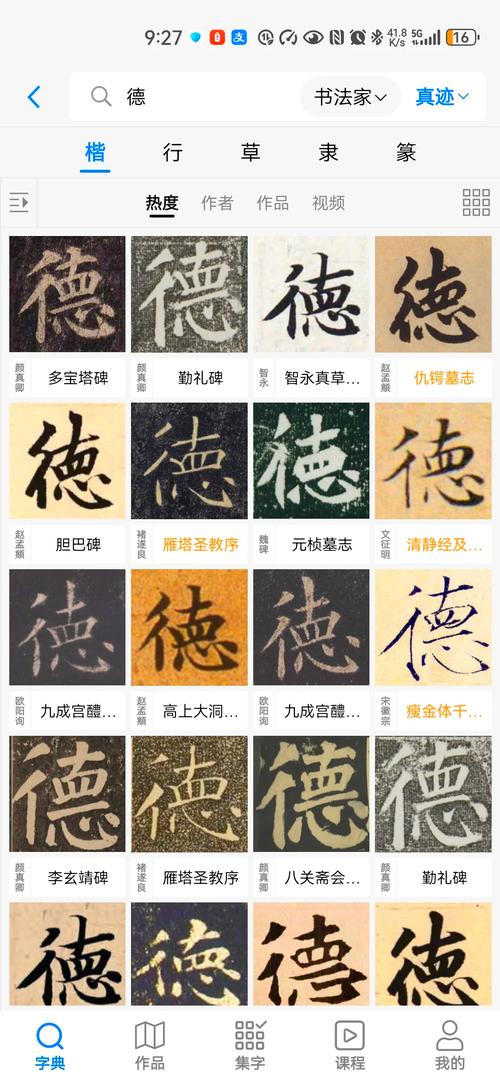 9:27 41.8 K/s 5G 16
德 书法家 真迹
楷 行 草 隶 篆
热度 作者 作品 视频
德 德 德 德
颜真卿 多宝塔碑 颜真卿 勤礼碑 智永 智永真草… 赵孟頫 仇锷墓志
德 德 德 德
赵孟頫 胆巴碑 褚遂良 雁塔圣教序 魏碑 元桢墓志 文征明 清静经及…
德 德 德 德
欧阳询 九成宫醴… 赵孟頫 高上大洞… 欧阳询 九成宫醴… 宋徽宗 瘦金体千…
德 德 德 德
颜真卿 李玄靖碑 褚遂良 雁塔圣教序 颜真卿 八关斋会… 颜真卿 勤礼碑
德 德 德 德
字典 作品 集字 课程 我的